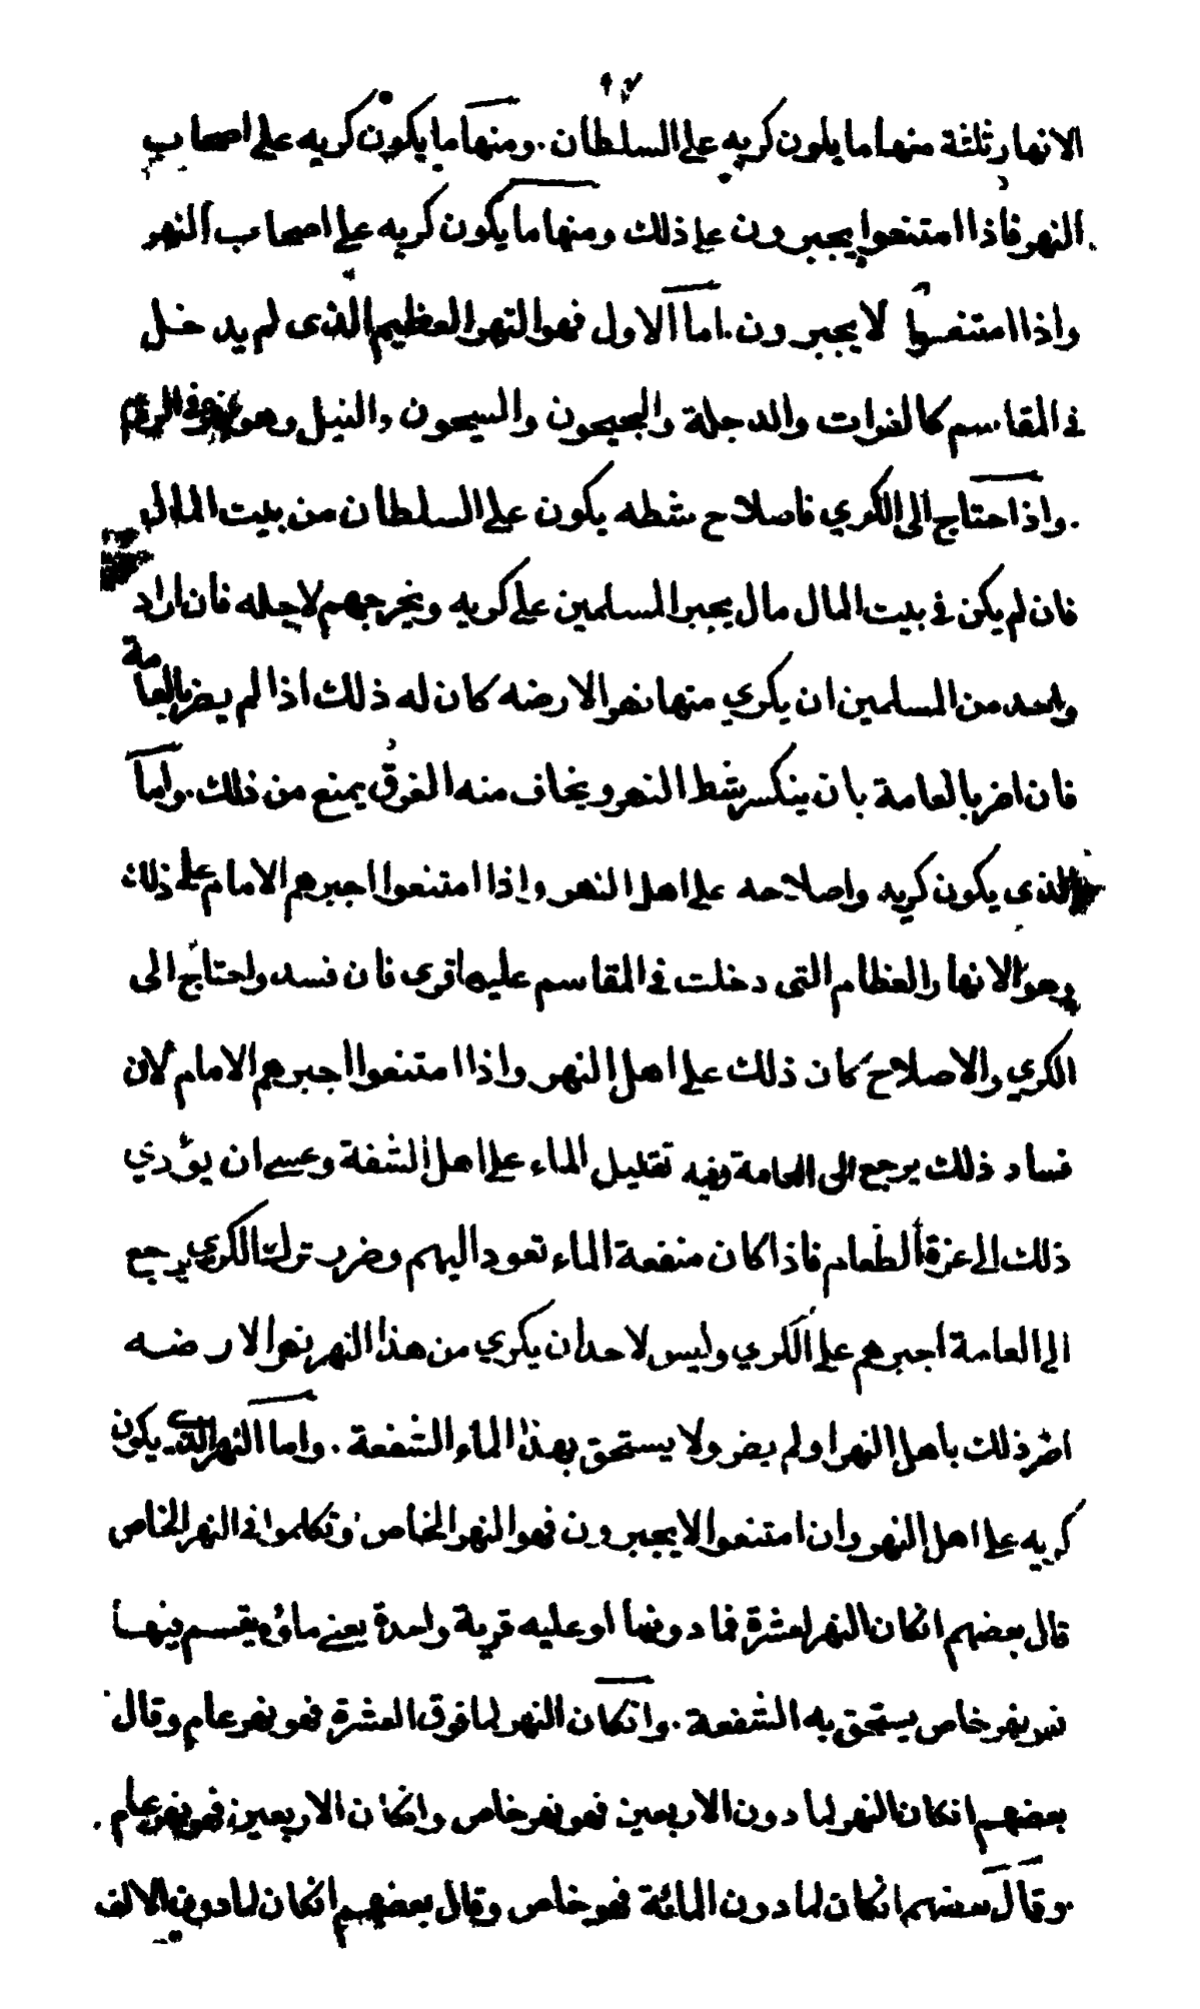 ٩٧
الانهار ثلثة منها ما يكون كريه على السلطان. ومنها ما يكون كريه على اصحاب
النهر فاذا امتنعوا يجبرون على ذلك ومنها ما يكون كريه على اصحاب النهر
واذا امتنعوا لا يجبرون. اما الاول فهو النهر العظيم الذى لم يدخل
فى المقاسم كالفرات والدجلة والجيحون والسيحون والنيل وهو نهر فى الروم
. واذا احتاج الى الكري فاصلاح شطه يكون على السلطان من بيت المال
فان لم يكن فى بيت المال مال يجبر المسلمين على كريه ويخرجهم لاجله فان اراد
واحد من المسلمين ان يكري منها نهرا لارضه كان له ذلك اذا لم يضر بالعامة
فان اضر بالعامة بان ينكسر شط النهر ويخاف منه الغرق يمنع من ذلك. واما
الذى يكون كريه واصلاحه على اهل النهر واذا امتنعوا اجبرهم الامام على ذلك
وهو الانهار العظام التى دخلت فى المقاسم عليها قرى فان فسد واحتاج الى
الكري والاصلاح كان ذلك على اهل النهر واذا امتنعوا اجبرهم الامام لان
فساد ذلك يرجع الى العامة وفيه تقليل الماء على اهل الشفة وعسى ان يؤدي
ذلك الى عزة الطعام فاذا كان منفعة الماء تعود اليهم وضرر ترك الكري يرجع
الى العامة اجبرهم على الكري وليس لاحد ان يكري من هذا النهر نهرا لارضه
اضر ذلك باهل النهر او لم يضر ولا يستحق بهذا الماء الشفعة. واما النهر الذى يكون
كريه على اهل النهر وان امتنعوا لا يجبرون فهو النهر الخاص وتكلموا فى النهر الخاص
قال بعضهم انكان النهر لعشرة فما دونها او عليه قرية واحدة يعني ماؤه يقسم فيها
فهو نهر خاص يستحق به الشفعة. وانكان النهر لما فوق العشرة فهو نهر عام وقال
بعضهم انكان النهر لما دون الاربعين فهو نهر خاص وانكان الاربعين فهو نهر عام.
. وقال بعضهم انكان لما دون المائة فهو خاص وقال بعضهم انكان لما دون الالف